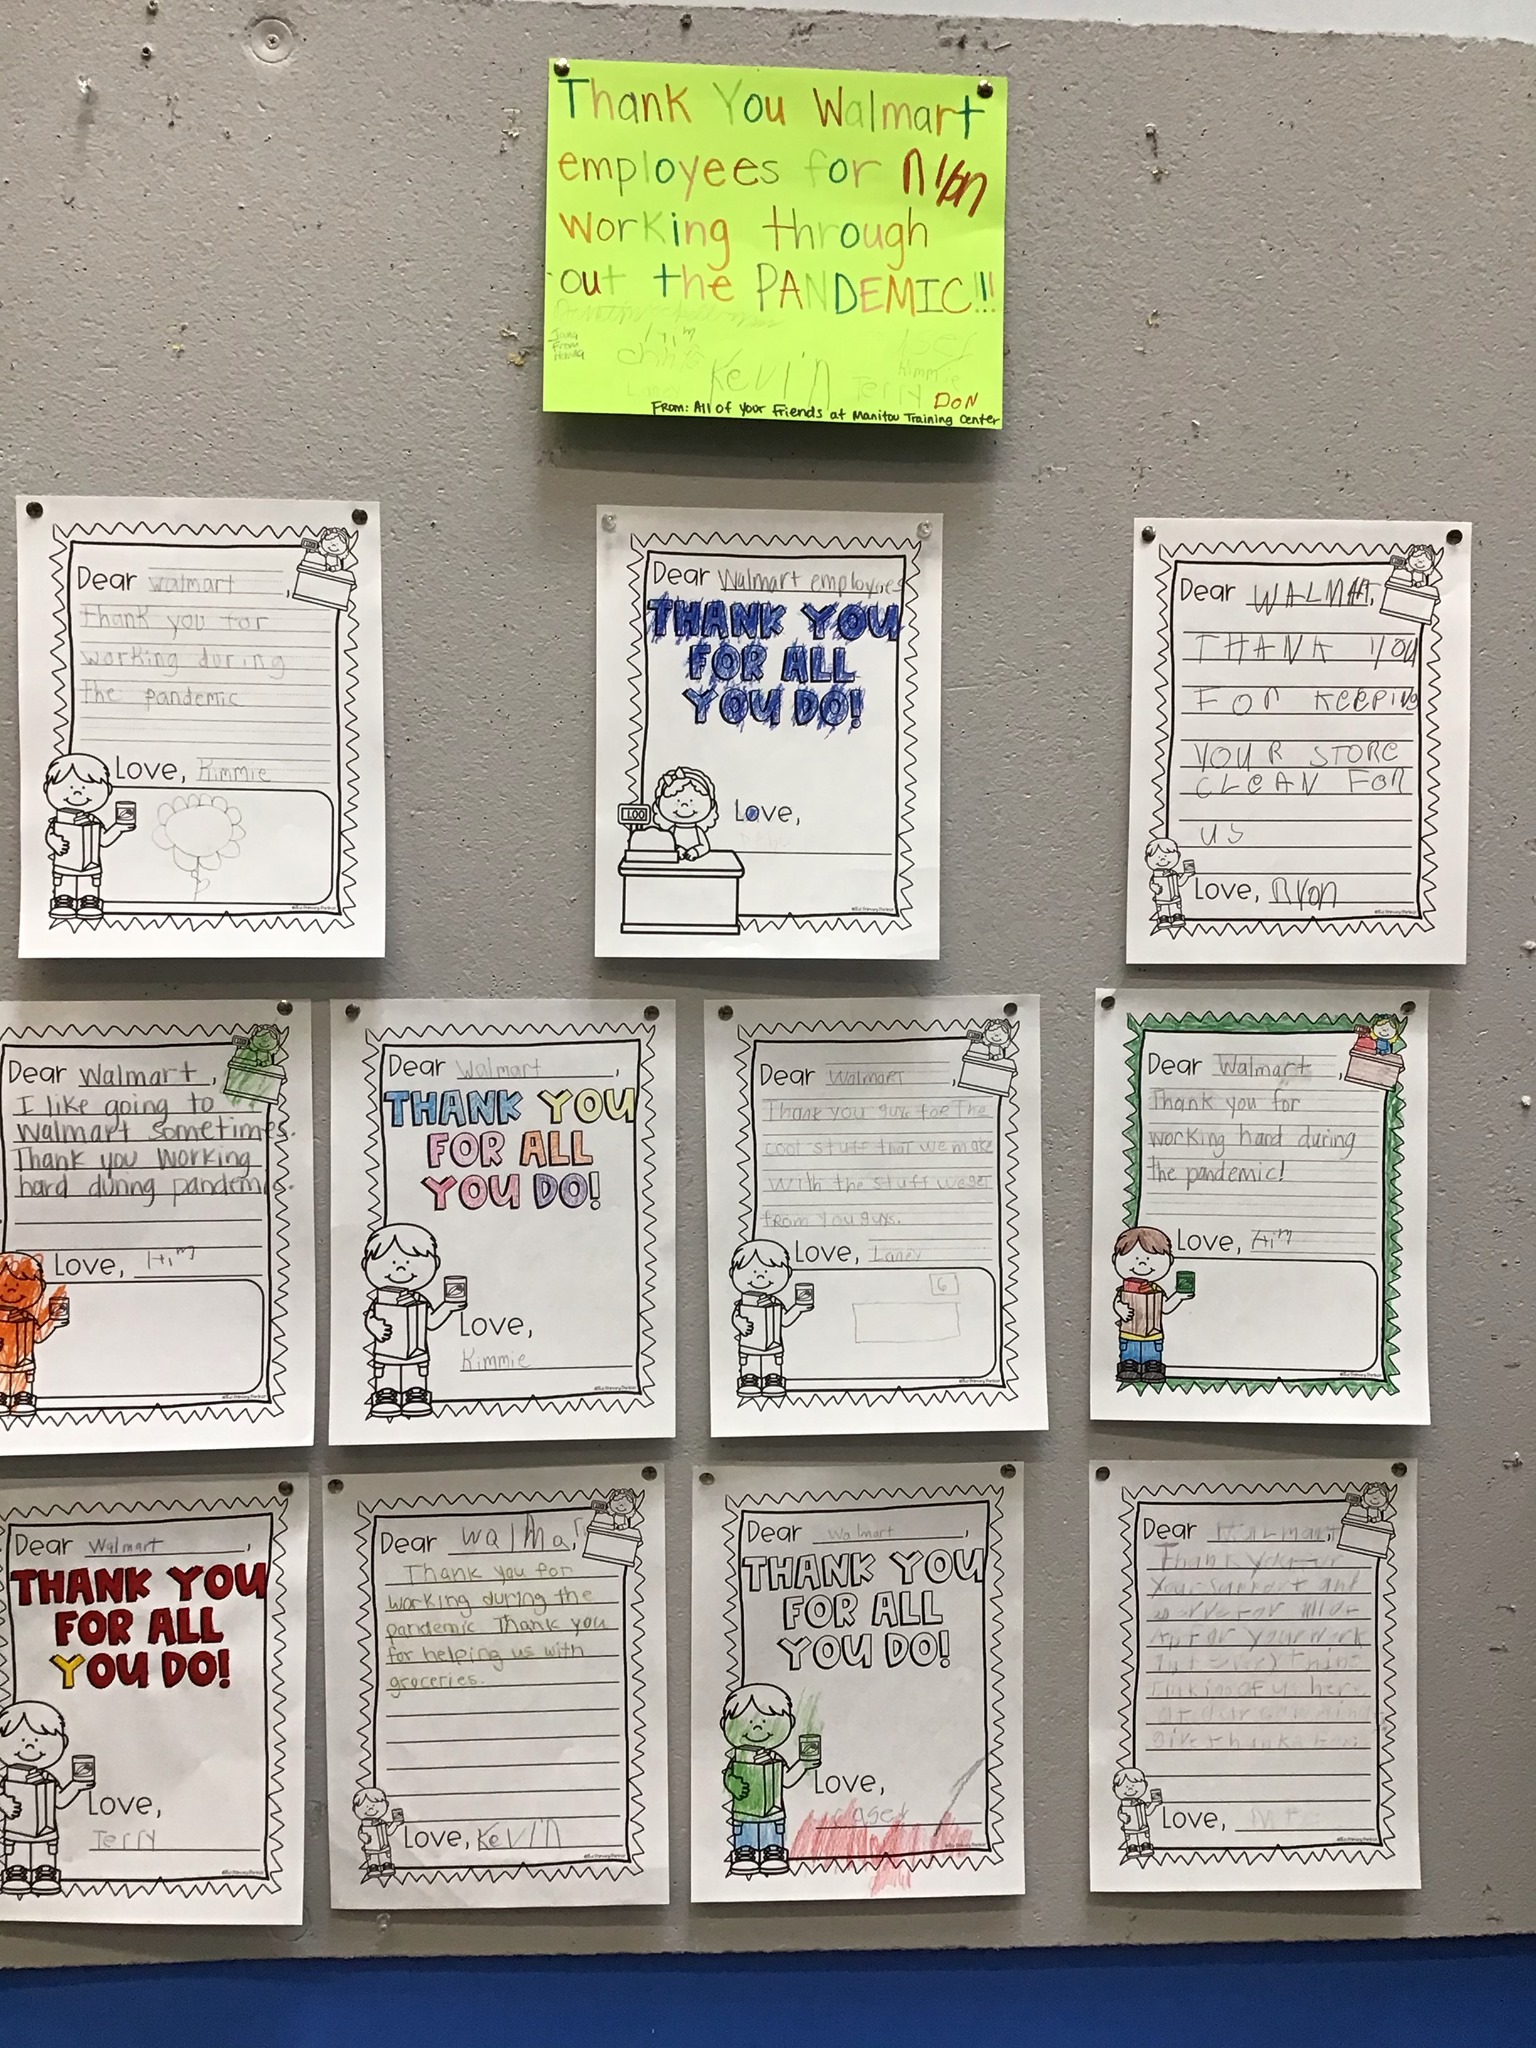 Thank You Walmart
employees for
working through
out the PANDEMIC!!!
Kevin
Terry
Kimmie
DON
From: All of your Friends at Manitou Training Center
Dear walmart,
thank you for
working during
the pandemic
Love, Kimmie
Dear Walmart employees
THANK YOU
FOR ALL
YOU DO!
1.00
Love,
Dear WALMART,
THANK YOU
FOR KEEPING
YOUR STORE
CLEAN FOR
US
Love, Ryon
Dear Walmart,
I like going to
Walmart sometimes.
Thank you working
hard during pandemic.
Love,
Dear Walmart,
THANK YOU
FOR ALL
YOU DO!
Love,
Kimmie
Dear Walmart,
Thank you guys for the
cool stuff that we make
with the stuff we get
from you guys.
Love, Laney
6
Dear Walmart
Thank you for
working hard during
the pandemic!
Love,
Dear Walmart,
THANK YOU
FOR ALL
YOU DO!
Love,
Terry
Dear Walmar,
Thank you for
working during the
pandemic Thank you
for helping us with
groceries.
Love, Kevin
Dear Walmart,
THANK YOU
FOR ALL
YOU DO!
Love,
Dear Walmart,
Thank you
your support and
for your work
of us here
at our
give thanks
Love,